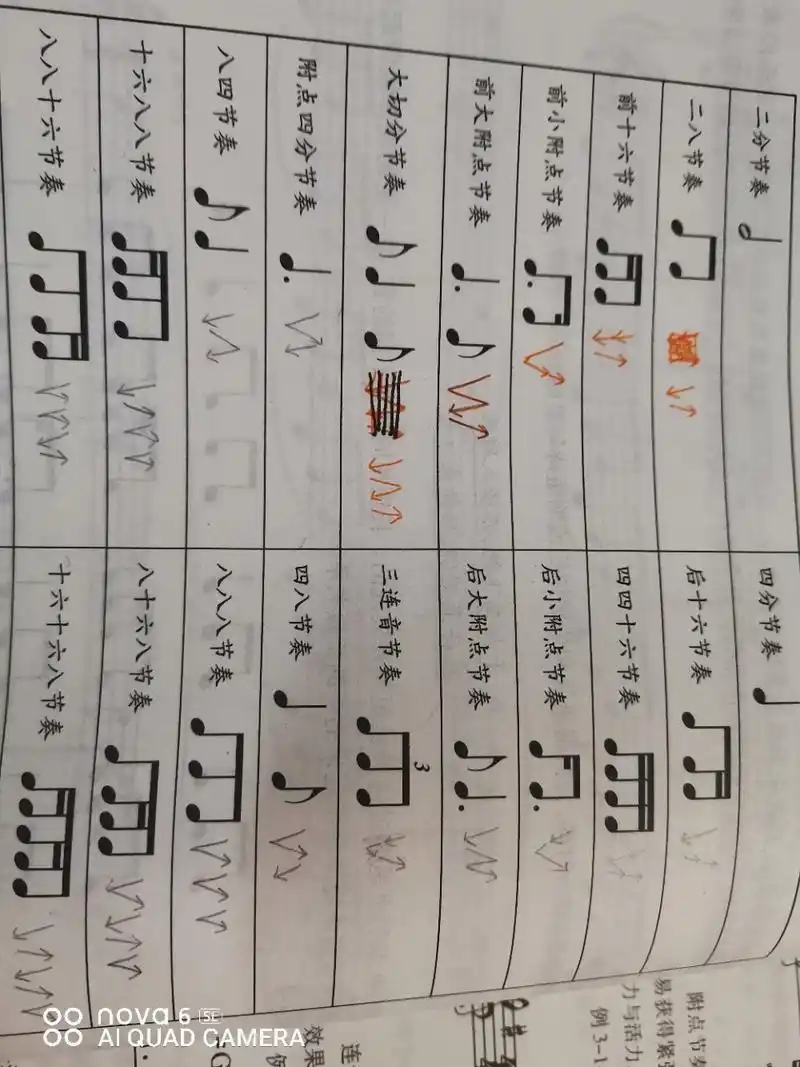 二分节奏 四分节奏
二八节奏 后十六节奏
前十六节奏 四四十六节奏
前小附点节奏 后小附点节奏
前大附点节奏 后大附点节奏
大切分节奏 三连音节奏 3
附点四分节奏 四八节奏
八四节奏 八八八节奏
十六八八节奏 八十六八节奏
八八十六节奏 十六十六八节奏
附点节
易获得紧
力与活力
例 3-1
连
效果
nova 6 SE
AI QUAD CAMERA